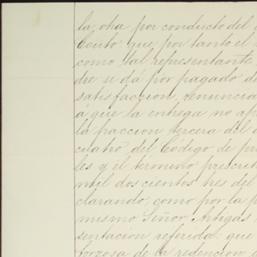 la, otra por conducto del
Couto que, por tanto el
como tal representante
dre se dá por pagado
satisfaccion, renuncia
á que la entrega no ap
la fraccion tercera del
culatro del Código de pro
les y el término prescrit
mil doscientos tres del
clarando, como por la p
mismo Señor Artigas
sentacion referida que
forzosa de la redencion